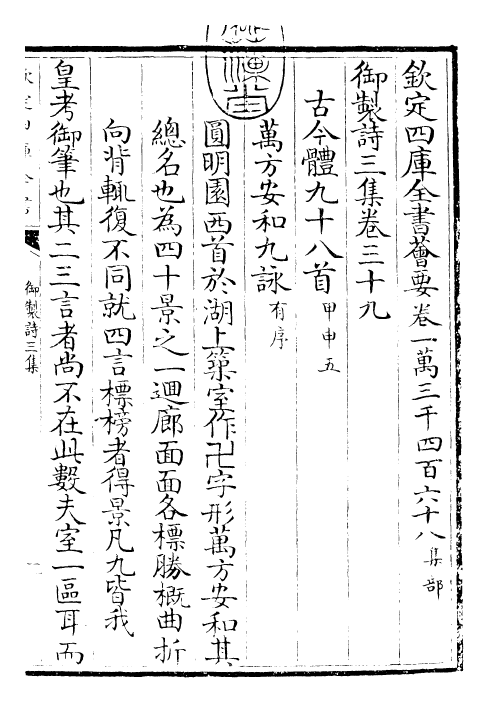 欽定四庫全書薈要卷一萬三千四百六十八集部
御製詩三集卷三十九
古今體九十八首甲申五
萬方安和九詠有序
圓明園西首於湖上築室作卍字形萬方安和其
總名也為四十景之一迴廊面面各標勝概曲折
向背輒復不同就四言標榜者得景凡九皆我
皇考御筆也其二三言者尚不在此數夫室一區耳而
御製詩三集